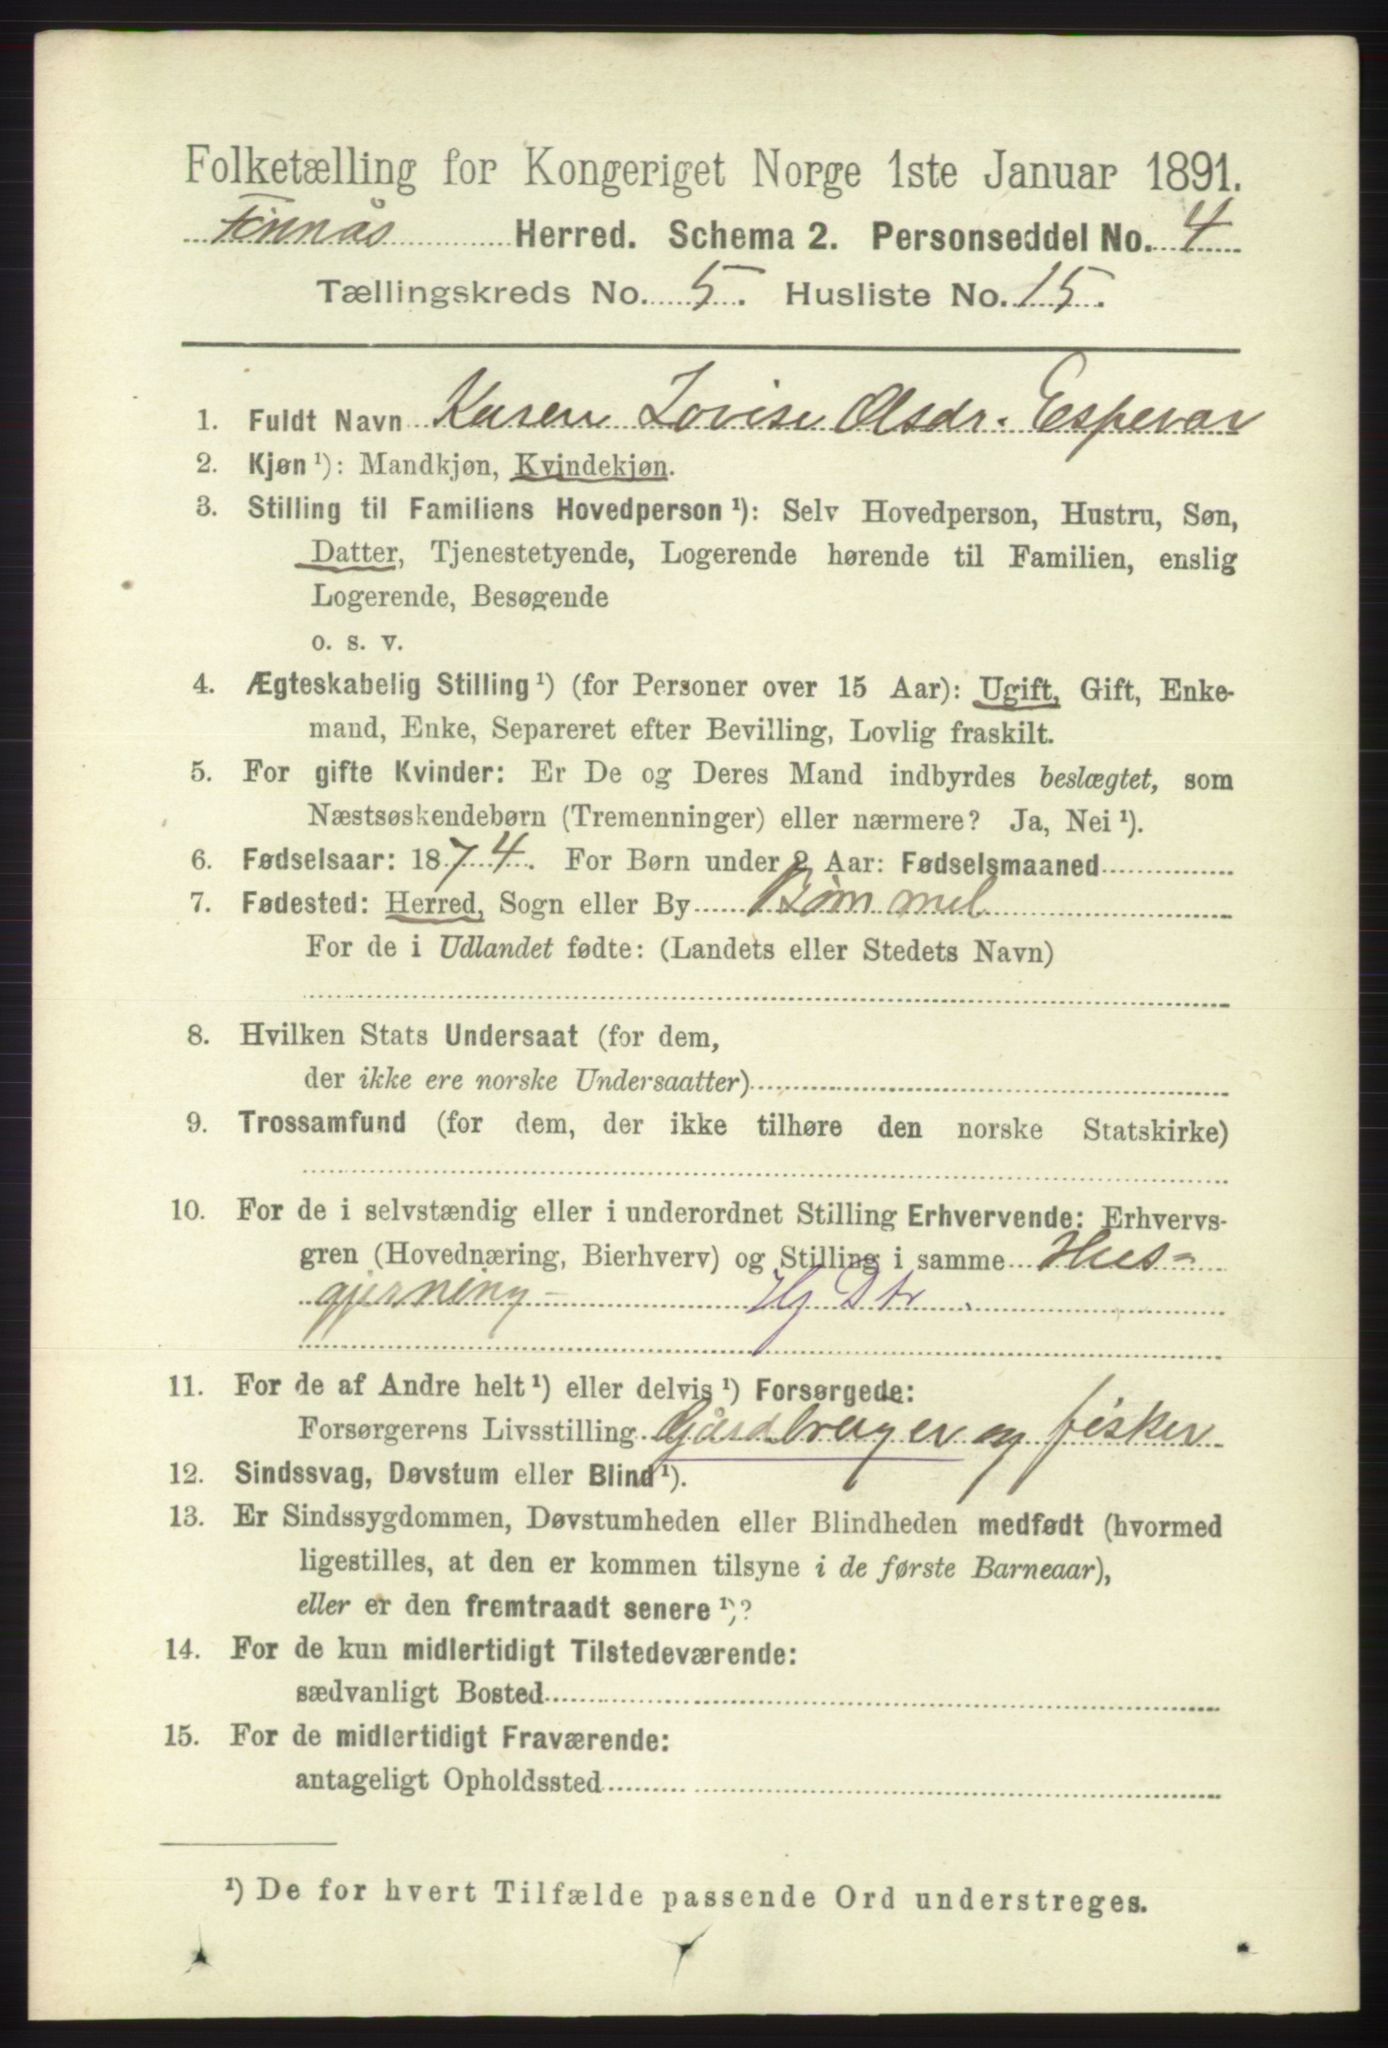 Folketælling for Kongeriget Norge 1ste Januar 1891.
Finnås Herred. Schema 2. Personseddel No. 4
Tællingskreds No. 5. Husliste No. 15.
1. Fuldt Navn Karen Lovise Olsdr. Espevær
2. Kjøn ¹): Mandkjøn, Kvindekjøn.
3. Stilling til Familiens Hovedperson ¹): Selv Hovedperson, Hustru, Søn,
Datter, Tjenestetyende, Logerende hørende til Familien, enslig
Logerende, Besøgende
o. s. v.
4. Ægteskabelig Stilling ¹) (for Personer over 15 Aar): Ugift, Gift, Enke-
mand, Enke, Separeret efter Bevilling, Lovlig fraskilt.
5. For gifte Kvinder: Er De og Deres Mand indbyrdes beslægtet, som
Næstsøskendebørn (Tremenninger) eller nærmere? Ja, Nei ¹).
6. Fødselsaar: 1874. For Børn under 2 Aar: Fødselsmaaned
7. Fødested: Herred, Sogn eller By Bømmel
For de i Udlandet fødte: (Landets eller Stedets Navn)
8. Hvilken Stats Undersaat (for dem,
der ikke ere norske Undersaatter)
9. Trossamfund (for dem, der ikke tilhøre den norske Statskirke)
10. For de i selvstændig eller i underordnet Stilling Erhvervende: Erhvervs-
gren (Hovednæring, Bierhverv) og Stilling i samme Hus-
gjerning - Hg Dtr
11. For de af Andre helt ¹) eller delvis ¹) Forsørgede:
Forsørgerens Livsstilling Gårdbruger og fisker
12. Sindssvag, Døvstum eller Blind ¹).
13. Er Sindssygdommen, Døvstumheden eller Blindheden medfødt (hvormed
ligestilles, at den er kommen tilsyne i de første Barneaar),
eller er den fremtraadt senere ¹)?
14. For de kun midlertidigt Tilstedeværende:
sædvanligt Bosted
15. For de midlertidigt Fraværende:
antageligt Opholdssted
¹) De for hvert Tilfælde passende Ord understreges.